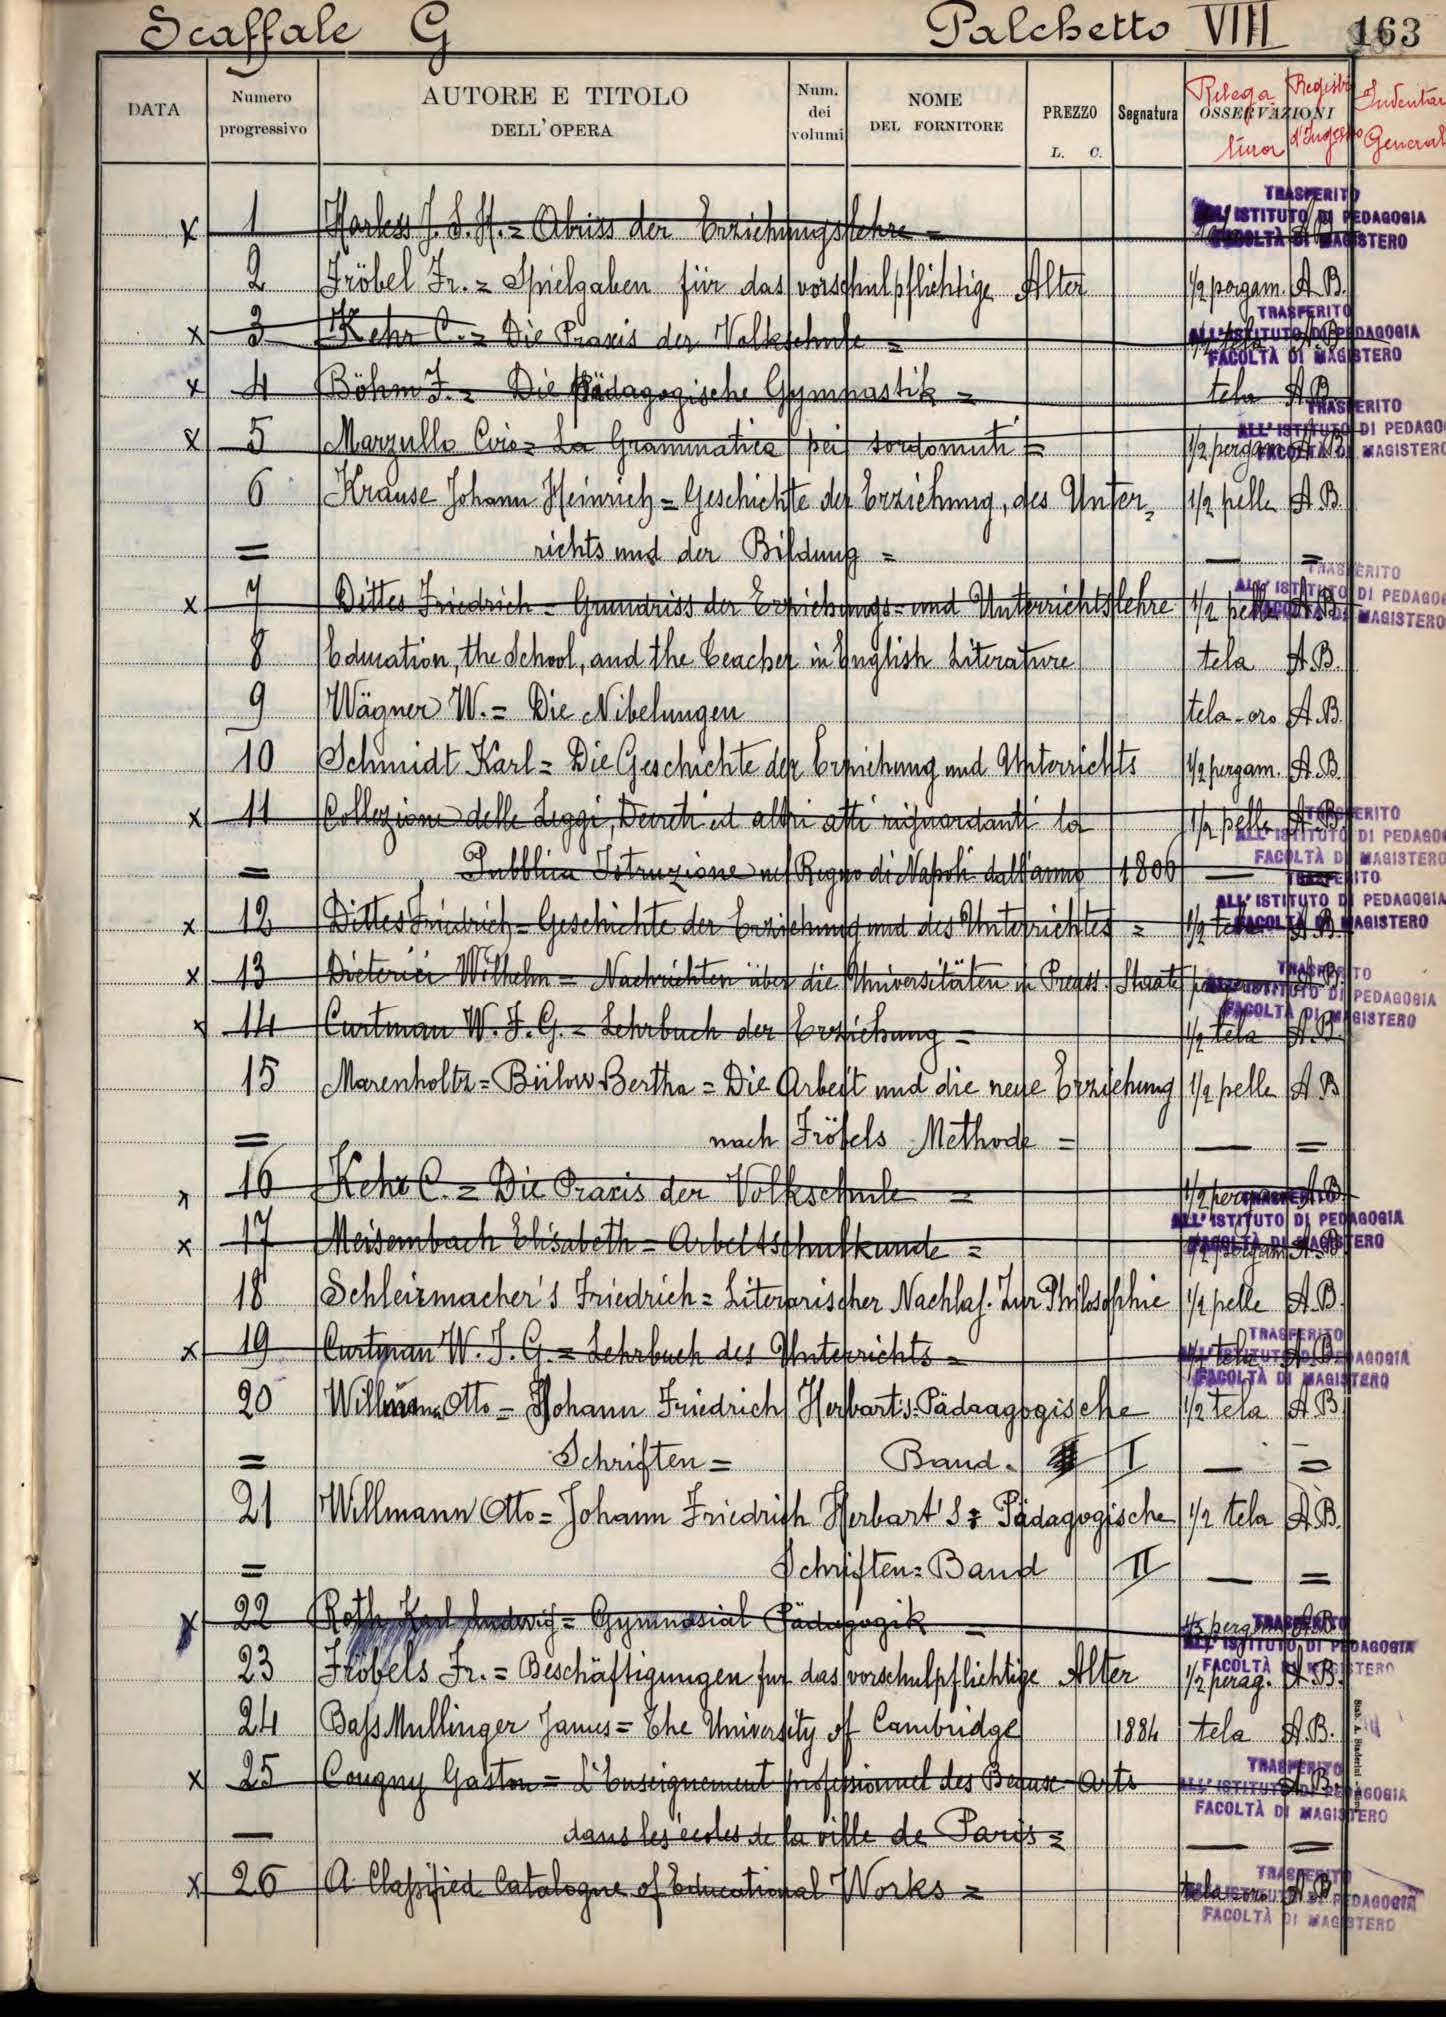 Scaffale G Palchetto VIII 163
DATA Numero progressivo AUTORE E TITOLO DELL'OPERA Num. dei volumi NOME DEL FORNITORE PREZZO L. C. Segnatura OSSERVAZIONI Rilega tura Registri d'Ingresso Inventar General
TRASFERITO
ALL'ISTITUTO DI PEDAGOGIA
FACOLTÀ DI MAGISTERO
x 1 Harless J. S. H. = Abriss der Erziehungslehre =
2 Fröbel Fr. = Spielgaben für das vorschulpflichtige Alter 1/2 pergam. A.B.
TRASFERITO
ALL'ISTITUTO DI PEDAGOGIA
FACOLTÀ DI MAGISTERO
x 3 Kehr C. = Die Praxis der Volkschule = 1/2 tela A.B.
x 4 Böhm J. = Die Pädagogische Gymnastik = tela A.B.
TRASFERITO
ALL'ISTITUTO DI PEDAGO
FACOLTÀ DI MAGISTERO
x 5 Marzullo Ciro = La Grammatica pei sordomuti = 1/2 pergam A.B.
6 Krause Johann Heinrich = Geschichte der Erziehung, des Unter, 1/2 pelle A.B.
= richts und der Bildung = — =
TRASFERITO
ALL'ISTITUTO DI PEDAGO
FACOLTÀ DI MAGISTERO
x 7 Dittes Friedrich = Grundriss der Erziehungs = und Unterrichtslehre 1/2 pelle A.B.
8 Education, the School, and the Teacher in English Literature tela A.B.
9 Wägner W. = Die Nibelungen tela-oro A.B.
10 Schmidt Karl = Die Geschichte der Erziehung und Unterrichts 1/2 pergam. A.B.
TRASFERITO
ALL'ISTITUTO DI PEDAGO
FACOLTÀ DI MAGISTERO
x 11 Collezione delle Leggi, Decreti ed altri atti riguardanti la 1/2 pelle A.B.
= Pubblica Istruzione nel Regno di Napoli dall'anno 1806 —
TRASFERITO
ALL'ISTITUTO DI PEDAGOGIA
FACOLTÀ DI MAGISTERO
x 12 Dittes Friedrich = Geschichte der Erziehung und des Unterrichtes = 1/2 tela A.B.
TRASFERITO
ALL'ISTITUTO DI PEDAGOGIA
FACOLTÀ DI MAGISTERO
x 13 Dieterici Wilhelm = Nachrichten über die Universitäten in Preuss. Staate A.B.
x 14 Curtman W. J. G. = Lehrbuch der Erziehung = 1/2 tela A.B.
15 Marenholtz = Bülow Bertha = Die Arbeit und die neue Erziehung 1/2 pelle A.B
= nach Fröbels Methode = — =
x 16 Kehr C. = Die Praxis der Volkschule = 1/2 pergam A.B.
TRASFERITO
ALL'ISTITUTO DI PEDAGOGIA
FACOLTÀ DI MAGISTERO
x 17 Meisembach Elisabeth = Arbeitsschulkunde = 1/2 pergam A.B
18 Schleirmacher's Friedrich = Literarischer Nachlaß. Zur Philosophie 1/2 pelle A.B.
TRASFERITO
ALL'ISTITUTO DI PEDAGOGIA
FACOLTÀ DI MAGISTERO
x 19 Curtman W. J. G. = Lehrbuch des Unterrichts = 1/2 tela A.B.
20 Willmann Otto = Johann Friedrich Herbart's = Pädaagogische 1/2 tela A.B.
= Schriften = Band. I — =
21 Willmann Otto = Johann Friedrich Herbart's = Pädagogische 1/2 tela A.B.
= Schriften = Band II — =
x 22 Roth Karl Ludwig = Gymnasial Pädagogik = 1/2 pergam A.B
TRASFERITO
ALL'ISTITUTO DI PEDAGOGIA
FACOLTÀ DI MAGISTERO
23 Fröbels Fr. = Beschäftigungen fur das vorschulpflichtige Alter 1/2 perag. A.B.
24 Baſs Mullinger James = The University of Cambridge 1884 tela A.B.
TRASFERITO
ALL'ISTITUTO DI PEDAGOGIA
FACOLTÀ DI MAGISTERO
x 25 Cougny Gaston = L'Enseignement professionnel des Beaux-Arts A.B.
— dans les écoles de la ville de Paris = — =
TRASFERITO
ALL'ISTITUTO DI PEDAGOGIA
FACOLTÀ DI MAGISTERO
x 26 A Claſsified Catalogue of Educational Works = tela-oro A.B